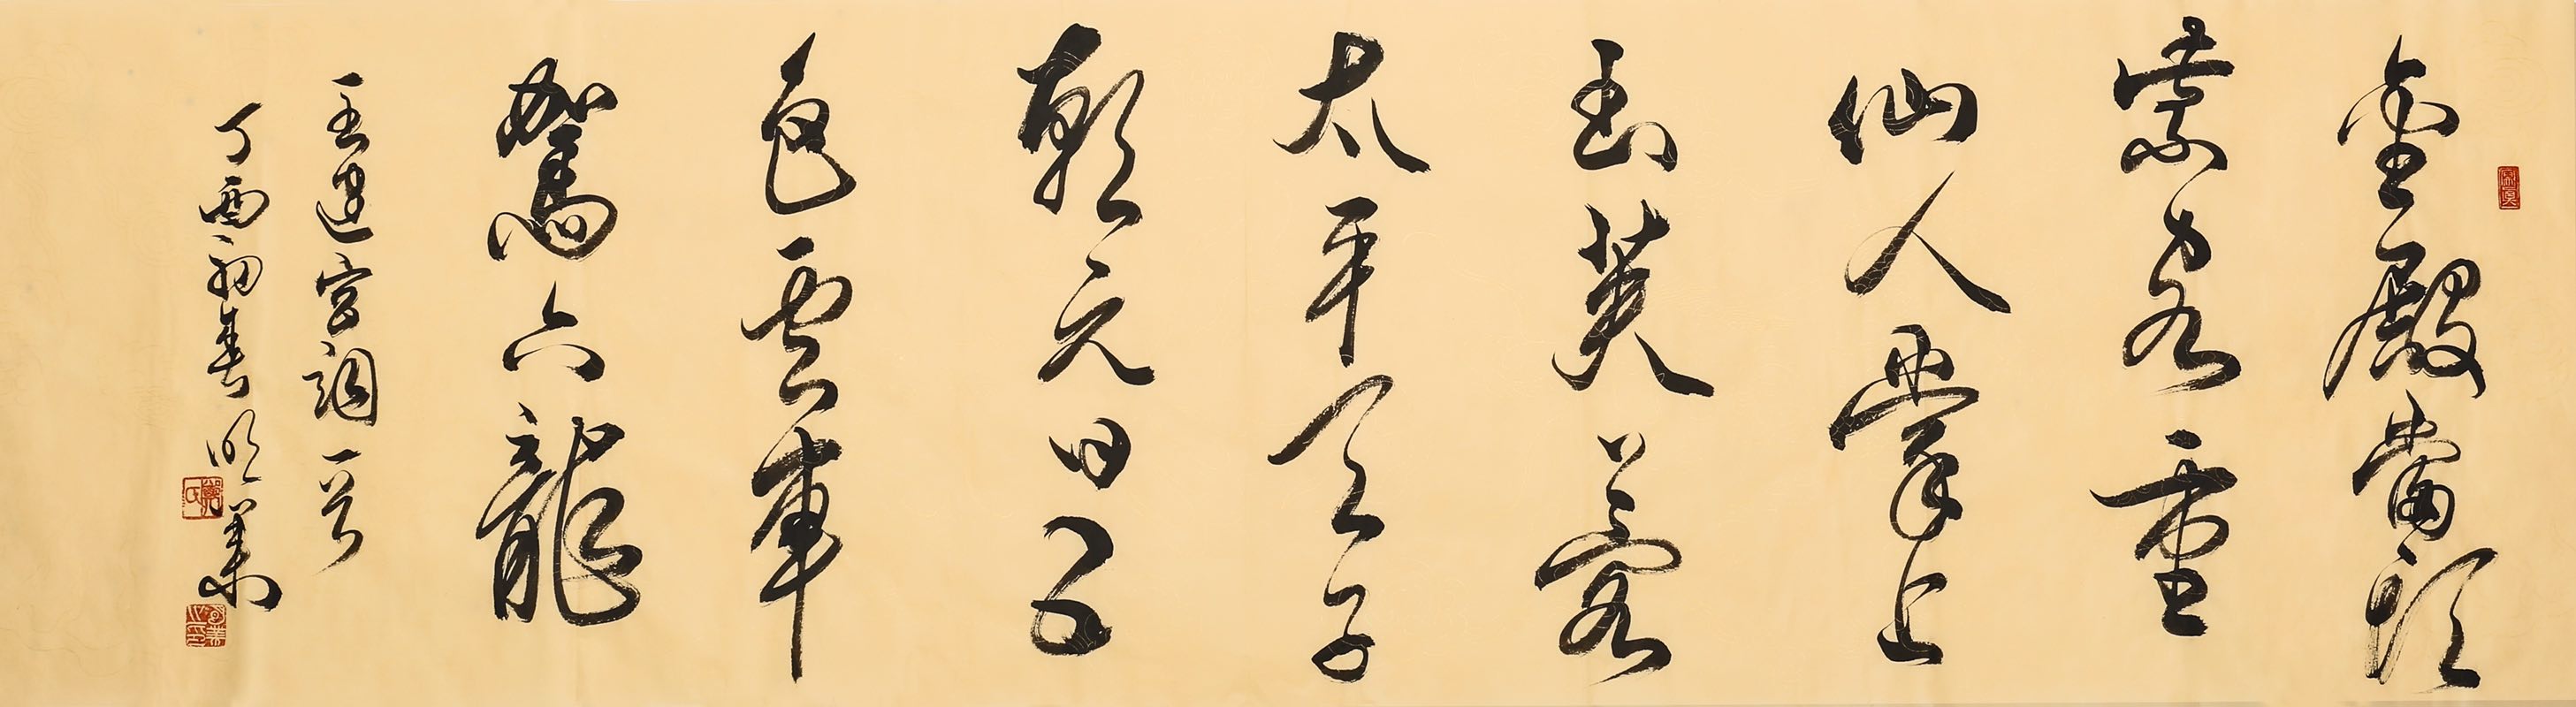 金殿當頭
紫閣重
仙人掌上
玉芙蓉
太平天子
朝元日五
色雲車
駕六龍
王建宮詞一首
丁酉初春